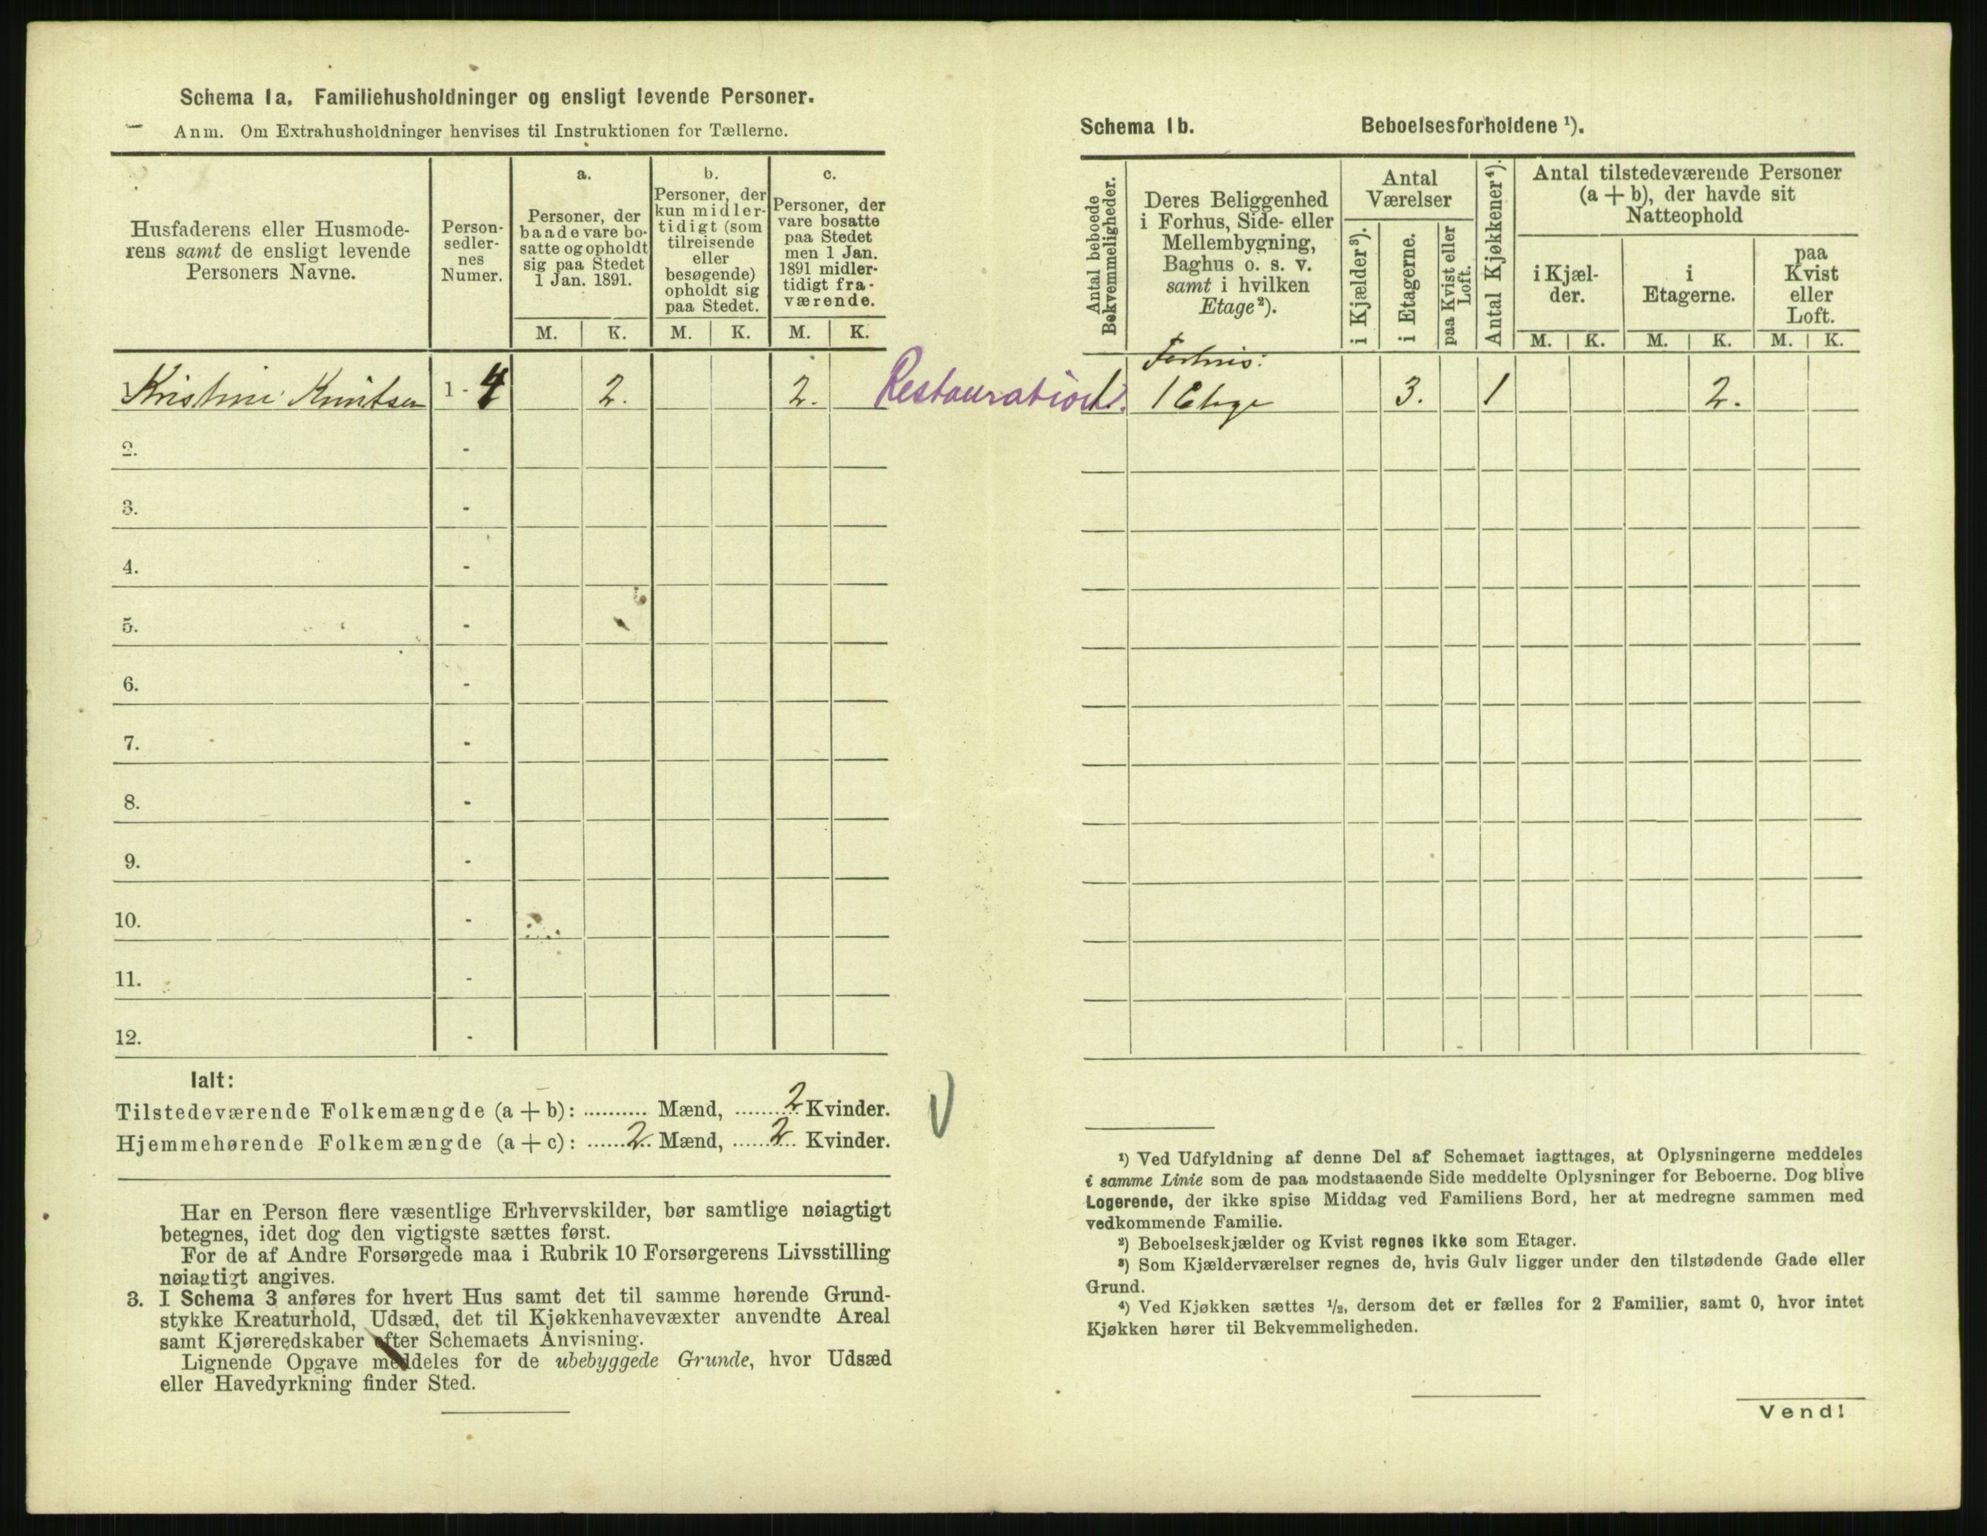 Schema 1a. Familiehusholdninger og ensligt levende Personer.
Anm. Om Extrahusholdninger henvises til Instruktionen for Tællerne.
Husfaderens eller Husmode-
rens samt de ensligt levende
Personers Navne.
Person-
sedler-
nes
Numer.
a.
Personer, der
baade vare bo-
satte og opholdt
sig paa Stedet
1 Jan. 1891.
b.
Personer, der
kun midler-
tidigt (som
tilreisende
eller
besøgende)
opholdt sig
paa Stedet.
c.
Personer, der
vare bosatte
paa Stedet
men 1 Jan.
1891 midler-
tidigt fra-
værende.
M. K. M. K. M. K.
Kristine Knutsen 1 - 4 2. 2. Restauration.
2. -
3. -
4. -
5. -
6. -
7. -
8. -
9. -
10. -
11. -
12. -
Ialt:
Tilstedeværende Folkemængde (a + b): .......... Mænd, ......... 2 Kvinder.
Hjemmehørende Folkemængde (a + c): ...... 2 .. Mænd, ...... 2 .. Kvinder.
Har en Person flere væsentlige Erhvervskilder, bør samtlige nøiagtigt
betegnes, idet dog den vigtigste sættes først.
For de af Andre Forsørgede maa i Rubrik 10 Forsørgerens Livsstilling
nøiagtigt angives.
3. I Schema 3 anføres for hvert Hus samt det til samme hørende Grund-
stykke Kreaturhold, Udsæd, det til Kjøkkenhavevæxter anvendte Areal
samt Kjøreredskaber efter Schemaets Anvisning.
Lignende Opgave meddeles for de ubebyggede Grunde, hvor Udsæd
eller Havedyrkning finder Sted.
Schema 1b. Beboelsesforholdene ¹).
Antal beboede
Bekvemmeligheder.
Deres Beliggenhed
i Forhus, Side- eller
Mellembygning,
Baghus o. s. v.
samt i hvilken
Etage²).
Antal
Værelser
i Kjælder³).
i Etagerne.
paa Kvist eller
Loft.
Antal Kjøkkener⁴).
Antal tilstedeværende Personer
(a + b), der havde sit
Natteophold
i Kjæl-
der.
i
Etagerne.
paa
Kvist
eller
Loft.
M. K. M. K. M. K.
Forhus:
1. 1 Etage 3. 1 2.
¹) Ved Udfyldning af denne Del af Schemaet iagttages, at Oplysningerne meddeles
i samme Linie som de paa modstaaende Side meddelte Oplysninger for Beboerne. Dog blive
Logerende, der ikke spise Middag ved Familiens Bord, her at medregne sammen med
vedkommende Familie.
²) Beboelseskjælder og Kvist regnes ikke som Etager.
³) Som Kjælderværelser regnes de, hvis Gulv ligger under den tilstødende Gade eller
Grund.
⁴) Ved Kjøkken sættes ½, dersom det er fælles for 2 Familier, samt 0, hvor intet
Kjøkken hører til Bekvemmeligheden.
Vend!